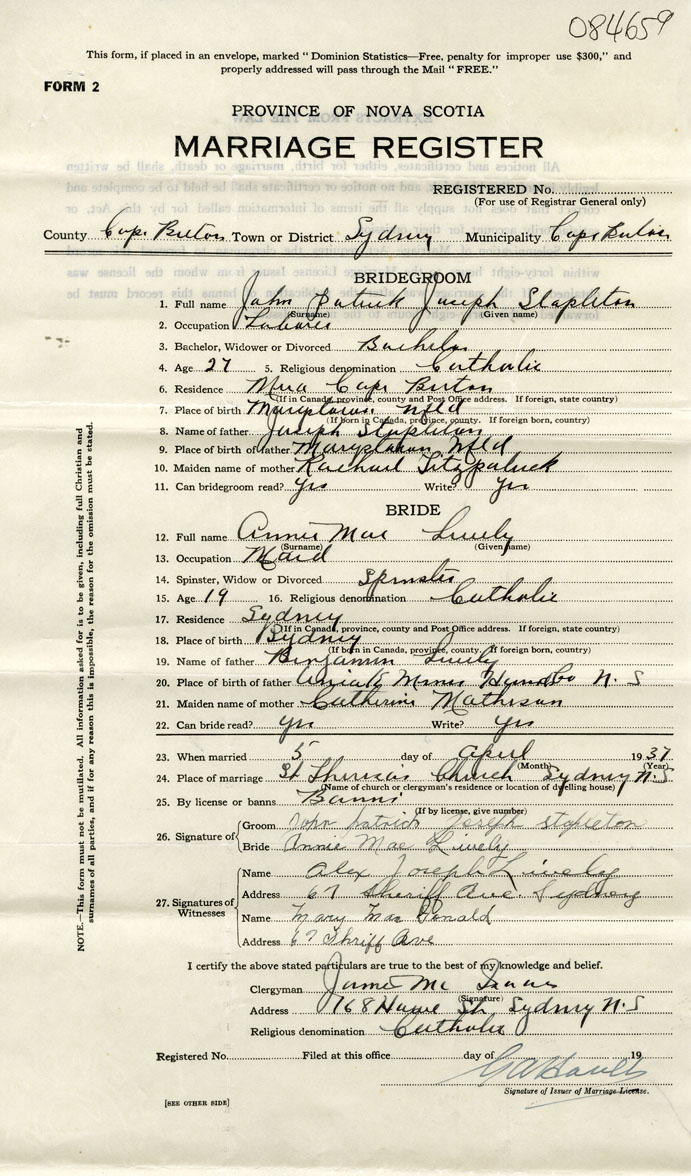 084659
This form, if placed in an envelope, marked "Dominion Statistics—Free, penalty for improper use $300," and
properly addressed will pass through the Mail "FREE."
FORM 2
PROVINCE OF NOVA SCOTIA
MARRIAGE REGISTER
REGISTERED No.
(For use of Registrar General only)
County Cape Breton Town or District Sydney Municipality Cape Breton
BRIDEGROOM
1. Full name John Patrick Joseph Stapleton
(Surname) (Given name)
2. Occupation Laborer
3. Bachelor, Widower or Divorced Bachelor
4. Age 27 5. Religious denomination Catholic
6. Residence Mira Cape Breton
(If in Canada, province, county and Post Office address. If foreign, state country)
7. Place of birth Marystown Nfld
(If born in Canada, province, county. If foreign born, country)
8. Name of father Joseph Stapleton
9. Place of birth of father Marystown Nfld
10. Maiden name of mother Rachael Fitzpatrick
11. Can bridegroom read? Yes Write? Yes
BRIDE
12. Full name Annie Mae Lively
(Surname) (Given name)
13. Occupation Maid
14. Spinster, Widow or Divorced Spinster
15. Age 19 16. Religious denomination Catholic
17. Residence Sydney
(If in Canada, province, county and Post Office address. If foreign, state country)
18. Place of birth Sydney
(If born in Canada, province, county. If foreign born, country)
19. Name of father Benjamin Lively
20. Place of birth of father Mines N.S
21. Maiden name of mother Catherine Matheson
22. Can bride read? Yes Write? Yes
23. When married 5 day of April 1937
(Month) (Year)
24. Place of marriage St Theresas Church Sydney N.S
(Name of church or clergyman's residence or location of dwelling house)
25. By license or banns Banns
(If by license, give number)
26. Signature of
Groom John Patrick Joseph Stapleton
Bride Annie Mae Lively
27. Signatures of Witnesses
Name Alex Joseph Lively
Address 67 Sheriff Ave Sydney
Name Mary MacDonald
Address 67 Shriff Ave
I certify the above stated particulars are true to the best of my knowledge and belief.
Clergyman James Mc Isaac
(Signature)
Address 768 Howe St. Sydney N.S
Religious denomination Catholic
Registered No. Filed at this office day of 19
Signature of Issuer of Marriage License.
[SEE OTHER SIDE]
NOTE.—This form must not be mutilated. All information asked for is to be given, including full Christian and
surnames of all parties, and if for any reason this is impossible, the reason for the omission must be stated.